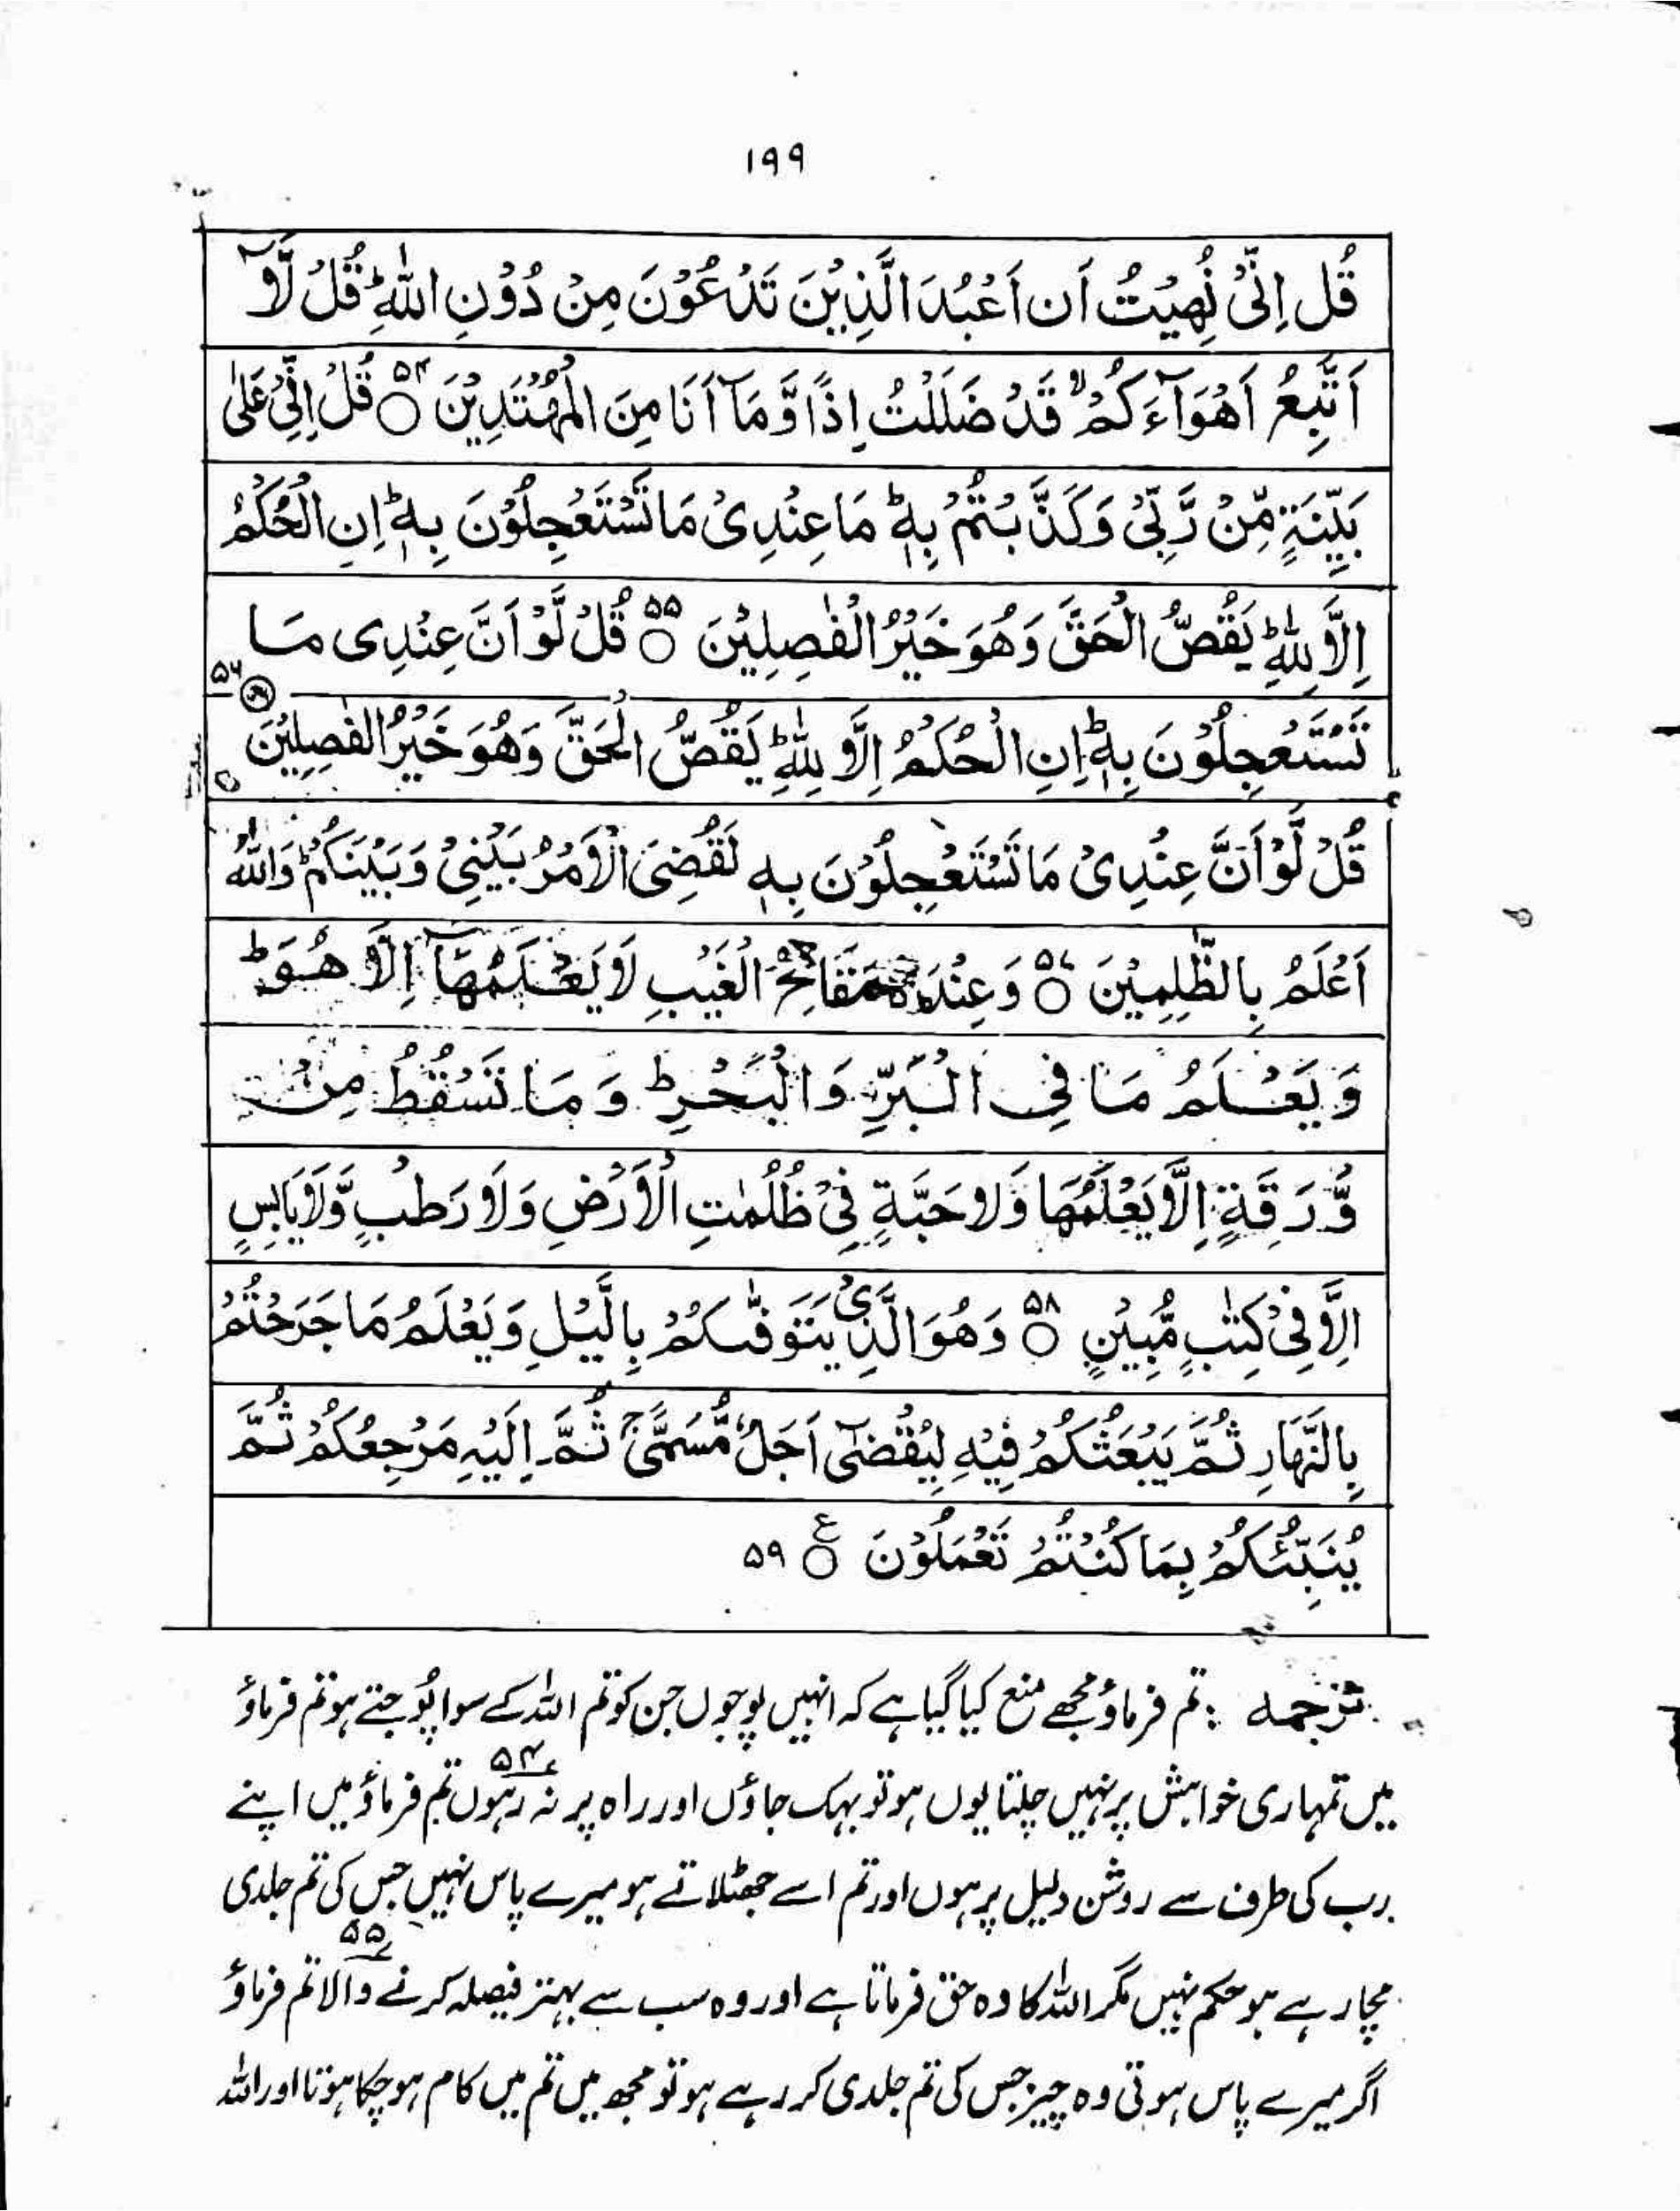 ۱۹۹
قُل اِنِّىْ نُهِيْتُ اَن اَعْبُدَ الَّذِيْنَ تَدْعُوْنَ مِنْ دُوْنِ اللّٰهِؕ قُلْ لَّاۤ
اَتَّبِعُ اَهْوَآءَكُمْۙ قَدْ ضَلَلْتُ اِذًا وَّمَاۤ اَنَا مِنَ الْمُهْتَدِيْنَ ○۵۴ قُلْ اِنِّىْ عَلٰى
بَيِّنَةٍ مِّنْ رَّبِّىْ وَكَذَّبْتُمْ بِهٖؕ مَا عِنْدِىْ مَا تَسْتَعْجِلُوْنَ بِهٖؕ اِنِ الْحُكْمُ
اِلَّا لِلّٰهِؕ يَقُصُّ الْحَقَّ وَهُوَ خَيْرُ الْفٰصِلِيْنَ ○۵۵ قُلْ لَّوْ اَنَّ عِنْدِى مَا
۵۶
تَسْتَعْجِلُوْنَ بِهٖؕ اِنِ الْحُكْمُ اِلَّا لِلّٰهِؕ يَقُصُّ الْحَقَّ وَهُوَ خَيْرُ الْفٰصِلِيْنَ
قُلْ لَّوْ اَنَّ عِنْدِىْ مَا تَسْتَعْجِلُوْنَ بِهٖ لَقُضِىَ الْاَمْرُ بَيْنِىْ وَبَيْنَكُمْؕ وَاللّٰهُ
اَعْلَمُ بِالظّٰلِمِيْنَ ○۵۷ وَعِنْدَهٗ مَفَاتِحُ الْغَيْبِ لَا يَعْلَمُهَاۤ اِلَّا هُوَؕ
وَيَعْلَمُ مَا فِى الْبَرِّ وَالْبَحْرِؕ وَمَا تَسْقُطُ مِنْ
وَّرَقَةٍ اِلَّا يَعْلَمُهَا وَلَا حَبَّةٍ فِىْ ظُلُمٰتِ الْاَرْضِ وَلَا رَطْبٍ وَّلَا يَابِسٍ
اِلَّا فِىْ كِتٰبٍ مُّبِيْنٍ ○۵۸ وَهُوَ الَّذِىْ يَتَوَفّٰىكُمْ بِالَّيْلِ وَيَعْلَمُ مَا جَرَحْتُمْ
بِالنَّهَارِ ثُمَّ يَبْعَثُكُمْ فِيْهِ لِيُقْضٰٓى اَجَلٌ مُّسَمًّىۚ ثُمَّ اِلَيْهِ مَرْجِعُكُمْ ثُمَّ
يُنَبِّئُكُمْ بِمَا كُنْتُمْ تَعْمَلُوْنَ ○ع ۵۹
ترجمہ : تم فرماؤ مجھے منع کیا گیا ہے کہ انہیں پوجوں جن کو تم اللہ کے سوا پُوجتے ہو تم فرماؤ
میں تمہاری خواہش پر نہیں چلتا یوں ہو تو بہک جاؤں اور راہ پر نہ رہوں ۵۴ تم فرماؤ میں اپنے
رب کی طرف سے روشن دلیل پر ہوں اور تم اسے جھٹلاتے ہو میرے پاس نہیں جس کی تم جلدی
مچا رہے ہو حکم نہیں مگر اللہ کا وہ حق فرماتا ہے اور وہ سب سے بہتر فیصلہ کرنے والا ۵۵ تم فرماؤ
اگر میرے پاس ہوتی وہ چیز جس کی تم جلدی کر رہے ہو تو مجھ میں تم میں کام ہو چکا ہوتا اور اللہ